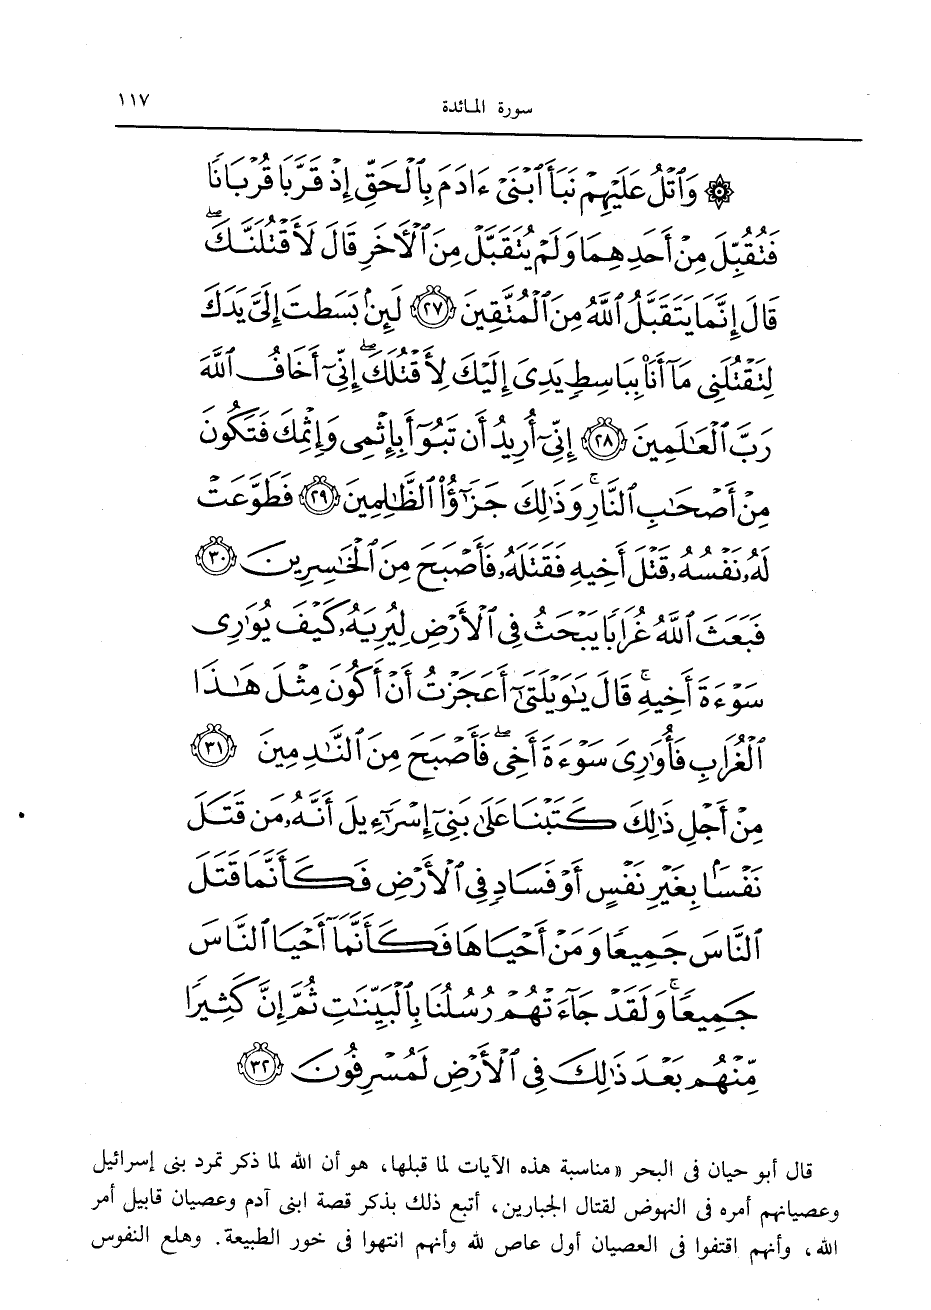 سورة المائدة ١١٧
۞ وَٱتۡلُ عَلَيۡهِمۡ نَبَأَ ٱبۡنَىۡ ءَادَمَ بِٱلۡحَقِّ إِذۡ قَرَّبَا قُرۡبَانٗا
فَتُقُبِّلَ مِنۡ أَحَدِهِمَا وَلَمۡ يُتَقَبَّلۡ مِنَ ٱلۡأٓخَرِ قَالَ لَأَقۡتُلَنَّكَۖ
قَالَ إِنَّمَا يَتَقَبَّلُ ٱللَّهُ مِنَ ٱلۡمُتَّقِينَ ٢٧ لَئِنۢ بَسَطتَ إِلَىَّ يَدَكَ
لِتَقۡتُلَنِى مَآ أَنَا۠ بِبَاسِطٖ يَدِىَ إِلَيۡكَ لِأَقۡتُلَكَۖ إِنِّىٓ أَخَافُ ٱللَّهَ
رَبَّ ٱلۡعَٰلَمِينَ ٢٨ إِنِّىٓ أُرِيدُ أَن تَبُوٓأَ بِإِثۡمِى وَإِثۡمِكَ فَتَكُونَ
مِنۡ أَصۡحَٰبِ ٱلنَّارِۚ وَذَٰلِكَ جَزَٰٓؤُاْ ٱلظَّٰلِمِينَ ٢٩ فَطَوَّعَتۡ
لَهُۥ نَفۡسُهُۥ قَتۡلَ أَخِيهِ فَقَتَلَهُۥ فَأَصۡبَحَ مِنَ ٱلۡخَٰسِرِينَ ٣٠
فَبَعَثَ ٱللَّهُ غُرَابٗا يَبۡحَثُ فِى ٱلۡأَرۡضِ لِيُرِيَهُۥ كَيۡفَ يُوَٰرِى
سَوۡءَةَ أَخِيهِۚ قَالَ يَٰوَيۡلَتَىٰٓ أَعَجَزۡتُ أَنۡ أَكُونَ مِثۡلَ هَٰذَا
ٱلۡغُرَابِ فَأُوَٰرِىَ سَوۡءَةَ أَخِىۖ فَأَصۡبَحَ مِنَ ٱلنَّٰدِمِينَ ٣١
مِنۡ أَجۡلِ ذَٰلِكَ كَتَبۡنَا عَلَىٰ بَنِىٓ إِسۡرَٰٓءِيلَ أَنَّهُۥ مَن قَتَلَ
نَفۡسَۢا بِغَيۡرِ نَفۡسٍ أَوۡ فَسَادٖ فِى ٱلۡأَرۡضِ فَكَأَنَّمَا قَتَلَ
ٱلنَّاسَ جَمِيعٗا وَمَنۡ أَحۡيَاهَا فَكَأَنَّمَآ أَحۡيَا ٱلنَّاسَ
جَمِيعٗاۚ وَلَقَدۡ جَآءَتۡهُمۡ رُسُلُنَا بِٱلۡبَيِّنَٰتِ ثُمَّ إِنَّ كَثِيرٗا
مِّنۡهُم بَعۡدَ ذَٰلِكَ فِى ٱلۡأَرۡضِ لَمُسۡرِفُونَ ٣٢
قال أبو حيان فى البحر «مناسبة هذه الآيات لما قبلها، هو أن الله لما ذكر تمرد بنى إسرائيل
وعصيانهم أمره فى النهوض لقتال الجبارين، أتبع ذلك بذكر قصة ابنى آدم وعصيان قابيل أمر
الله، وأنهم اقتفوا فى العصيان أول عاص لله وأنهم انتهوا فى خور الطبيعة. وهلع النفوس